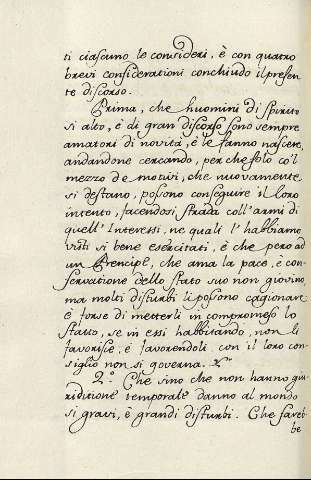 ti ciascuno le consideri, è con quatro
brevi considerationi conchiudo il presen
te discorso.
Prima, che huomini di spirito
si alto, è di gran discorso sono sempre
amatori di novità, è le fanno nascere,
andandone cercando, perche solo co'l
mezzo de motivi, che nuovamente
si destano, possono conseguire il loro
intento, facendosi strada coll'armi di
quell'Interessi, ne quali l'habbiamo
visti si bene esercitati, è che però ad
un Prencipe, che ama la pace, è con
servatione dello stato suo non giovino,
ma molti disturbi li possono cagionare
è forse di metterli in compromesso lo
stato, se in essi habbitando, non li
favorisse, è favorendoli, con il loro con
siglio non si governa.
2.º Che sino che non hanno giu
riditione temporale danno al mondo
si gravi, è grandi disturbi. Che sareb
be